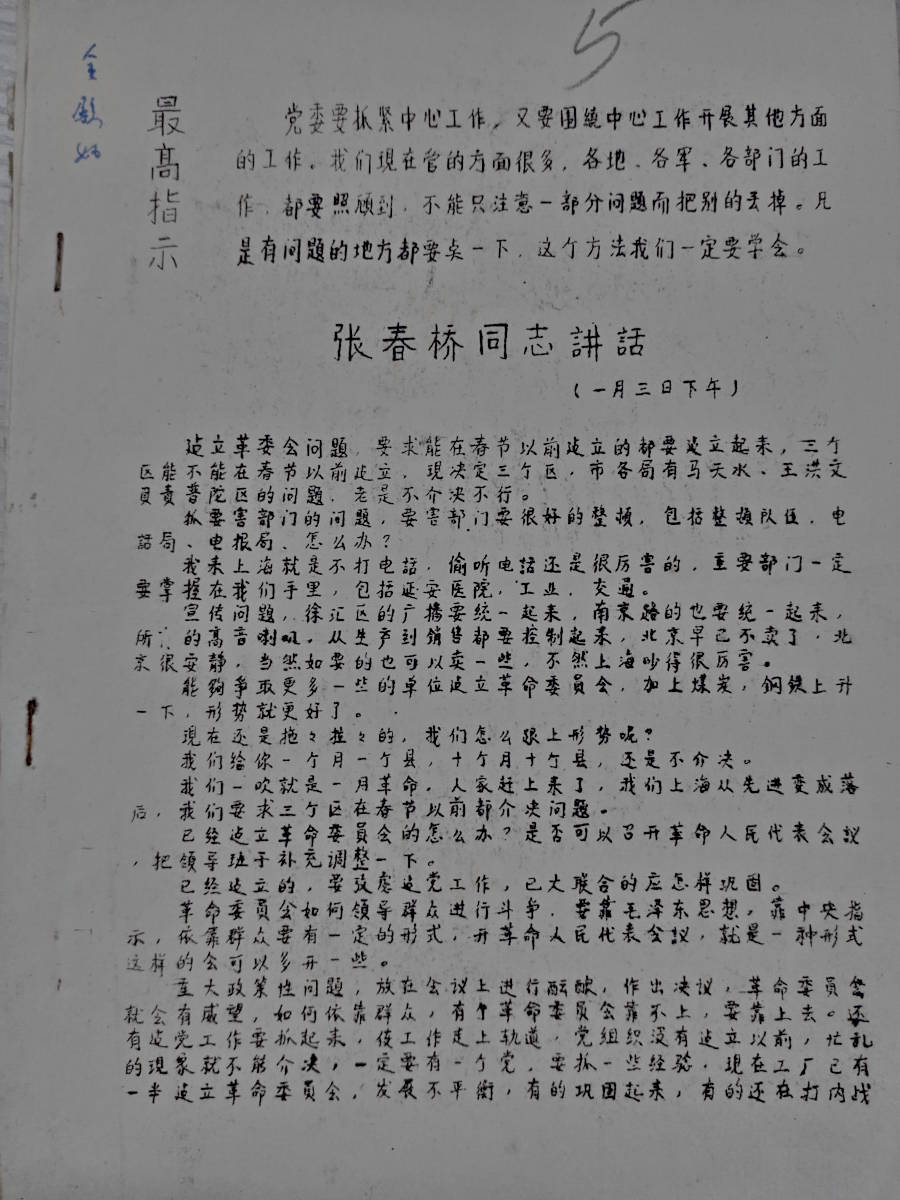 5
最高指示
党委要抓紧中心工作，又要围繞中心工作开展其他方面
的工作。我们現在管的方面很多，各地、各军、各部门的工
作，都要照顾到，不能只注意一部分问題而把别的丢掉。凡
是有问題的地方都要点一下，这个方法我们一定要学会。
张春桥同志講話
（一月三日下午）
建立革委会问題，要求能在春节以前建立的都要建立起来，三个
区能不能在春节以前建立，現决定三个区，市各局有马天水、王洪文
負責普陀区的问題，老是不介决不行。
抓要害部门的问題，要害部门要很好的整頓，包括整頓队伍，电
話局、电报局、怎么办？
我来上海就是不打电話，偷听电話还是很厉害的，重要部门一定
要掌握在我们手里，包括延安医院，工业，交通。
宣传问題，徐汇区的广播要统一起来，南京路的也要统一起来，
所 的高音喇叭，从生产到销售都要控制起来，北京早已不卖了，北
京很安静，当然如要的也可以卖一些，不然上海吵得很厉害。
能夠争取更多一些的单位建立革命委员会，加上煤炭，鋼铁上升
一下，形势就更好了。
現在还是拖々拉々的，我们怎么跟上形势呢？
我们给你一个月一个县，十个月十个县，还是不介决。
我们一吹就是一月革命，人家赶上来了，我们上海从先进变成落
后，我们要求三个区在春节以前都介决问題。
已经建立革命委员会的怎么办？是否可以召开革命人民代表会議
，把領导班子补充調整一下。
已经建立的，要攷虑建党工作，已大联合的应怎样巩固。
革命委員会如何領导群众进行斗争，要靠毛泽东思想，靠中央指
示，依靠群众要有一定的形式，开革命人民代表会議，就是一种形式
这样的会可以多开一些。
重大政策性问題，放在会议上进行酝酿，作出决议，革命委員会
就会有威望，如何依靠群众，有个革命委員会靠不上，要靠上去。还
有建党工作要抓起来，使工作走上轨道，党组织没有建立以前，忙乱
的現象就不能介决，一定要有一个党，要抓一些经验，現在工厂已有
一半建立革命委員会，发展不平衡，有的巩固起来，有的还在打内战